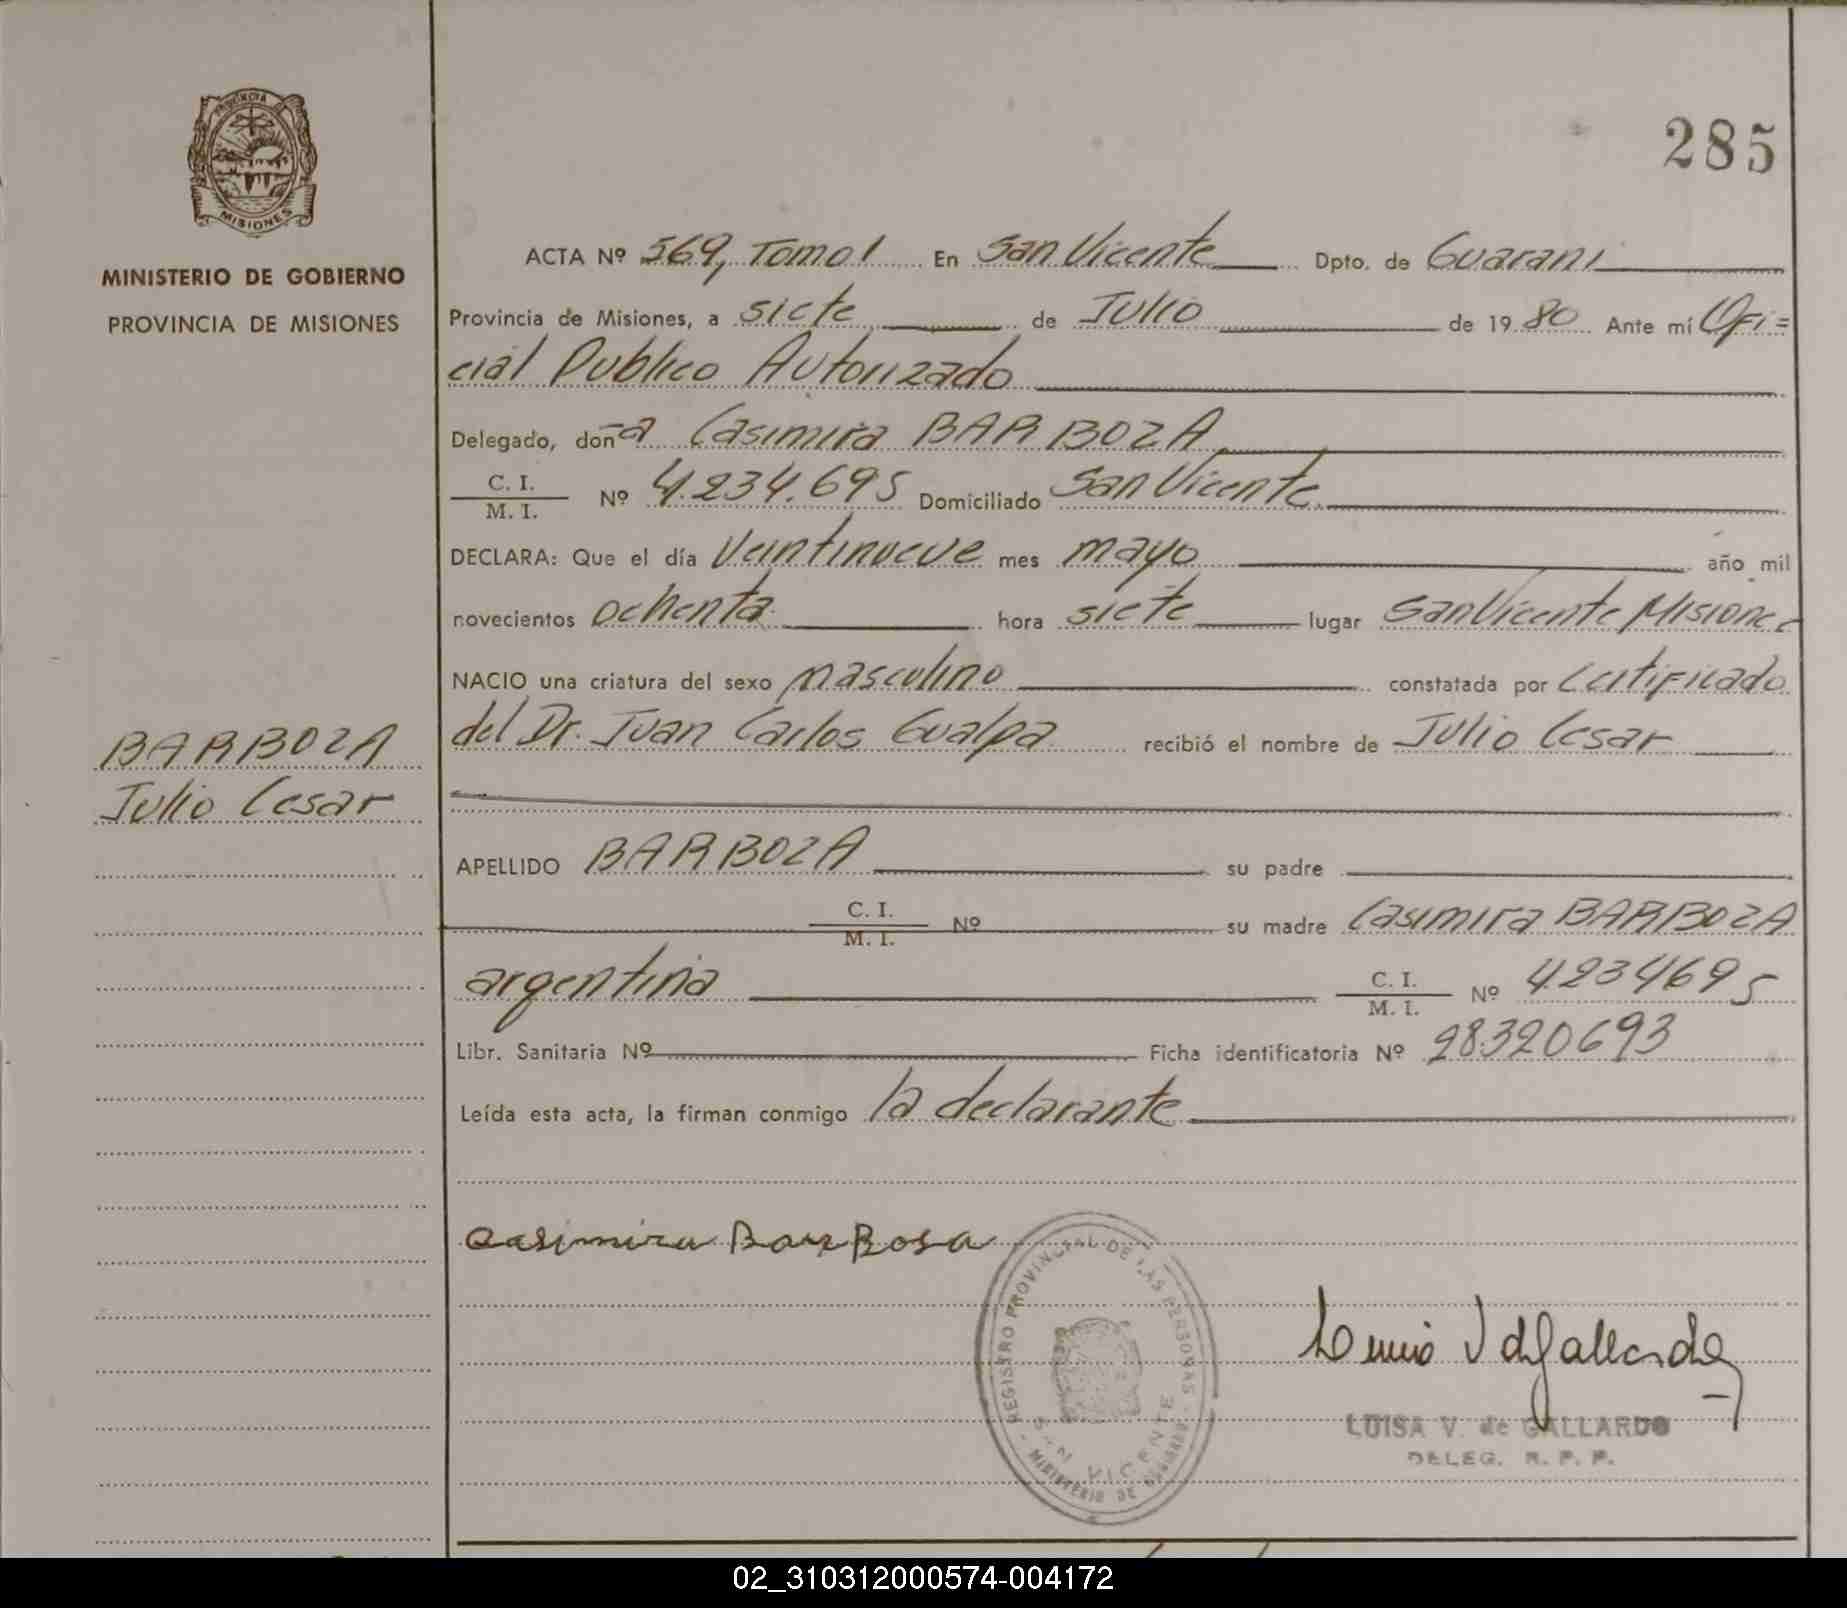 PROVINCIA DE
MISIONES
MINISTERIO DE GOBIERNO
PROVINCIA DE MISIONES
BARBOZA
Julio Cesar
285
ACTA Nº 569, Tomo 1 En San Vicente Dpto. de Guarani
Provincia de Misiones, a siete de Julio de 1980 Ante mí Ofi=
cial Publico Autorizado
Delegado, don-a Casimira BARBOZA
C. I.
M. I. Nº 4.234.695 Domiciliado San Vicente
DECLARA: Que el día Veintinueve mes mayo año mil
novecientos ochenta hora siete lugar San Vicente Misiones
NACIO una criatura del sexo masculino constatada por Certificado
del Dr. Juan Carlos Gualpa recibió el nombre de Julio Cesar
APELLIDO BARBOZA su padre
C. I.
M. I. Nº su madre Casimira BARBOZA
argentina C. I.
M. I. Nº 4234695
Libr. Sanitaria Nº Ficha identificatoria Nº 28.320693
Leída esta acta, la firman conmigo la declarante
Casimira BarBosa
REGISTRO PROVINCIAL DE LAS PERSONAS
SAN VICENTE
MINISTERIO DE GOBIERNO
LUISA V. de GALLARDO
DELEG. R. P. P.
02_310312000574-004172